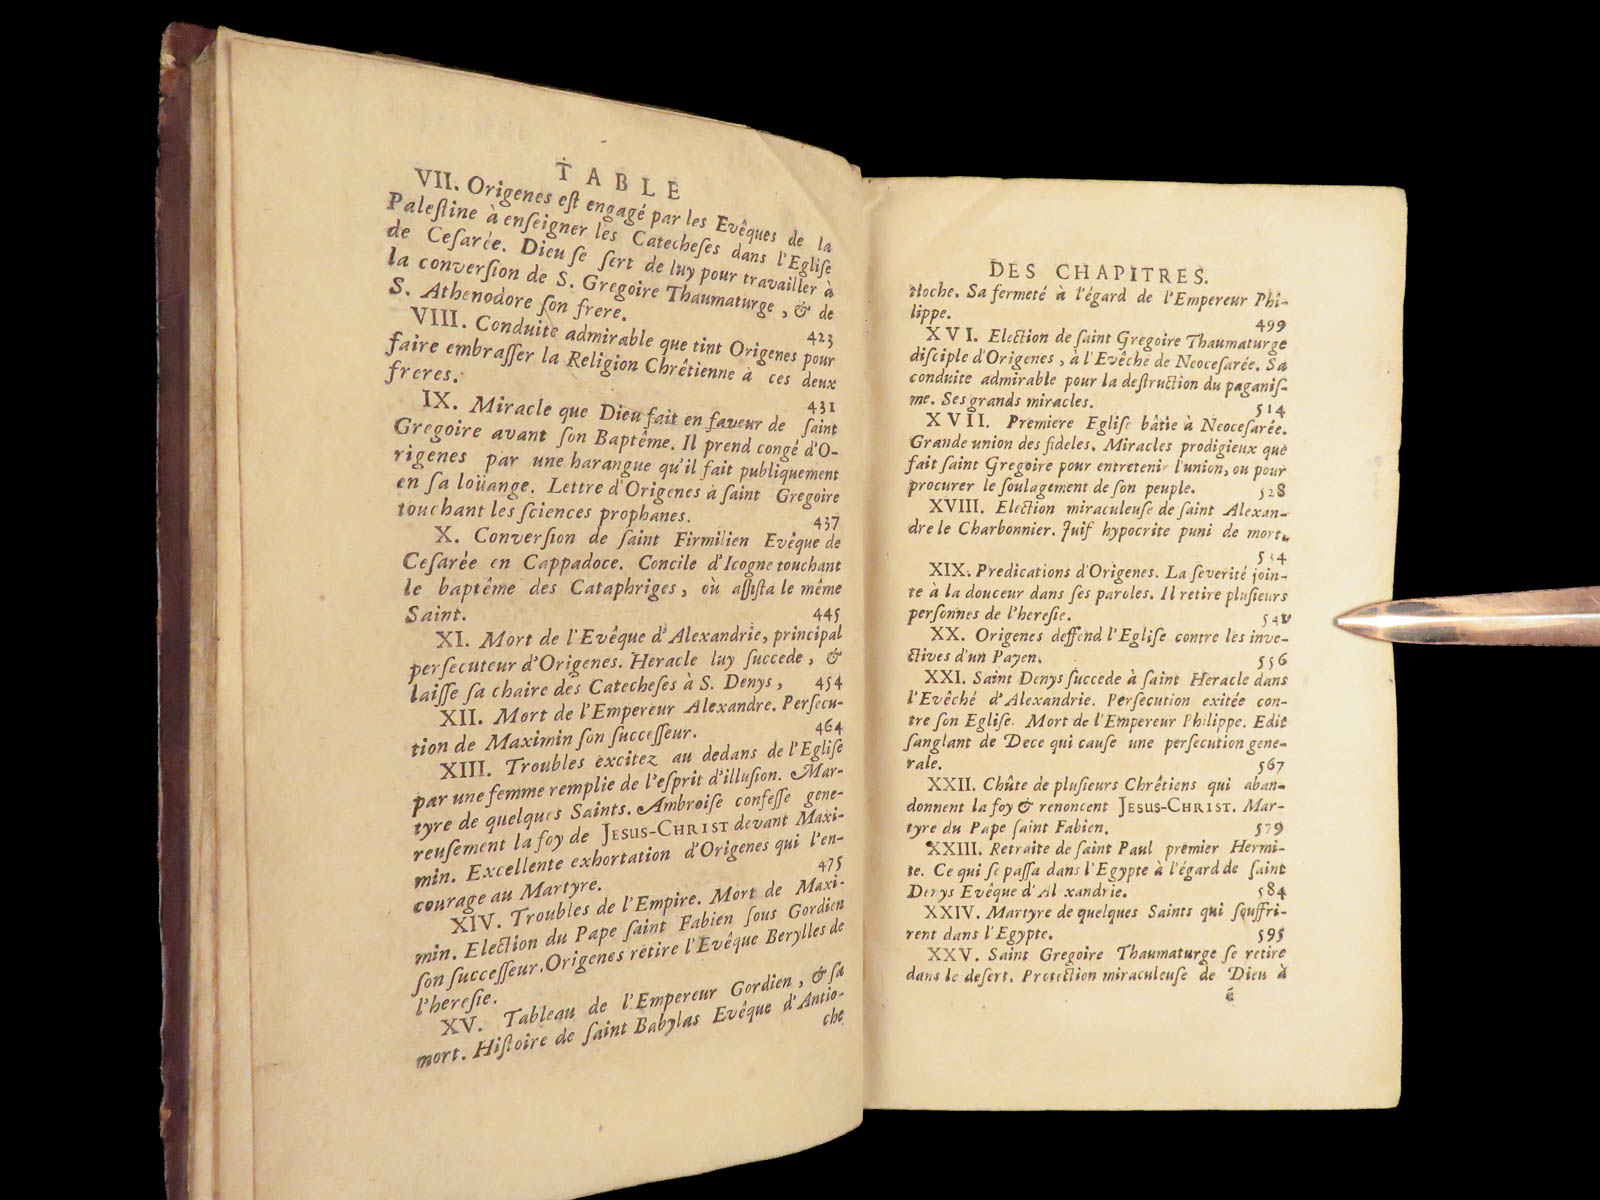 TABLE
VII. Origenes eſt engagé par les Evêques de la
Paleſtine à enſeigner les Catecheſes dans l'Egliſe
de Ceſarée. Dieu ſe ſert de luy pour travailler à
la converſion de S. Gregoire Thaumaturge, & de
S. Athenodore ſon frere. 423
VIII. Conduite admirable que tint Origenes pour
faire embraſſer la Religion Chrêtienne à ces deux
freres. 431
IX. Miracle que Dieu fait en faveur de ſaint
Gregoire avant ſon Baptême. Il prend congé d'O-
rigenes par une harangue qu'il fait publiquement
en ſa loüange. Lettre d'Origenes à ſaint Gregoire
touchant les ſciences prophanes. 437
X. Converſion de ſaint Firmilien Evêque de
Ceſarée en Cappadoce. Concile d'Icogne touchant
le baptême des Cataphriges, où aſſiſta le même
Saint. 445
XI. Mort de l'Evêque d'Alexandrie, principal
perſecuteur d'Origenes. Heracle luy ſuccede, &
laiſſe ſa chaire des Catecheſes à S. Denys, 454
XII. Mort de l'Empereur Alexandre. Perſecu-
tion de Maximin ſon ſucceſſeur. 464
XIII. Troubles excitez au dedans de l'Egliſe
par une femme remplie de l'eſprit d'illuſion. Mar-
tyre de quelques Saints. Ambroiſe confeſſe gene-
reuſement la foy de JESUS-CHRIST devant Maxi-
min. Excellente exhortation d'Origenes qui l'en-
courage au Martyre. 475
XIV. Troubles de l'Empire. Mort de Maxi-
min. Election du Pape ſaint Fabien ſous Gordien
ſon ſucceſſeur. Origenes retire l'Evêque Berylles de
l'hereſie.
XV. Tableau de l'Empereur Gordien, & ſa
mort. Hiſtoire de ſaint Babylas Evêque d'Antio-
che
DES CHAPITRES.
tioche. Sa fermeté à l'égard de l'Empereur Phi-
lippe. 499
XVI. Election de ſaint Gregoire Thaumaturge
diſciple d'Origenes, à l'Evêche de Neoceſarée. Sa
conduite admirable pour la deſtruction du paganiſ-
me. Ses grands miracles. 514
XVII. Premiere Egliſe bâtie à Neoceſarée.
Grande union des fideles. Miracles prodigieux que
fait ſaint Gregoire pour entretenir l'union, ou pour
procurer le ſoulagement de ſon peuple. 528
XVIII. Election miraculeuſe de ſaint Alexan-
dre le Charbonnier. Juif hypocrite puni de mort.
534
XIX. Predications d'Origenes. La ſeverité join-
te à la douceur dans ſes paroles. Il retire pluſieurs
perſonnes de l'hereſie.
XX. Origenes deffend l'Egliſe contre les inve-
ctives d'un Payen. 556
XXI. Saint Denys ſuccede à ſaint Heracle dans
l'Evêché d'Alexandrie. Perſecution exitée con-
tre ſon Egliſe. Mort de l'Empereur Philippe. Edit
ſanglant de Dece qui cauſe une perſecution gene-
rale. 567
XXII. Chûte de pluſieurs Chrêtiens qui aban-
donnent la foy & renoncent JESUS-CHRIST. Mar-
tyre du Pape ſaint Fabien. 579
XXIII. Retraite de ſaint Paul premier Hermi-
te. Ce qui ſe paſſa dans l'Egypte à l'égard de ſaint
Denys Evêque d'Alexandrie. 584
XXIV. Martyre de quelques Saints qui ſouffri-
rent dans l'Egypte. 595
XXV. Saint Gregoire Thaumaturge ſe retire
dans le deſert. Protection miraculeuſe de Dieu à
é